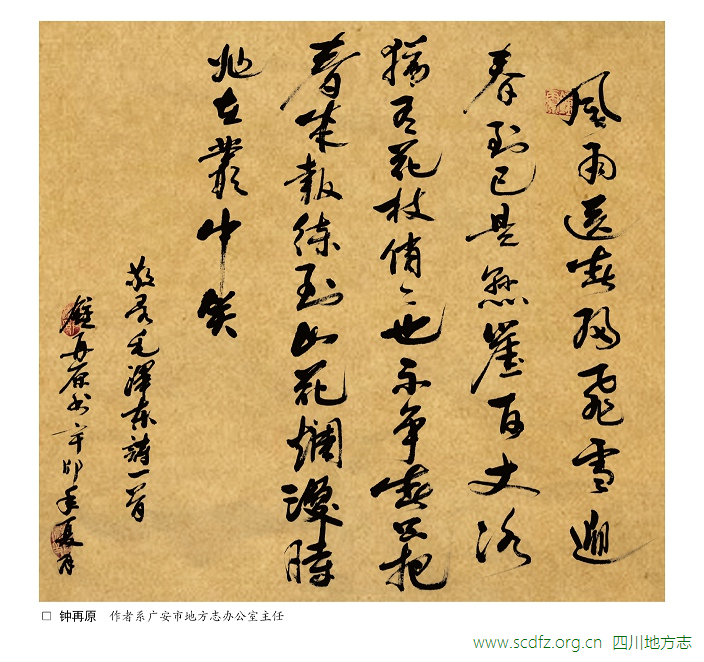 風雨送春歸飛雪迎
春到已是懸崖百丈冰
猶有花枝俏々也不争春只把
春來報待到山花爛漫時
她在叢中笑
敬录毛澤東詩一首
鍾再原书辛卯年夏月
□ 钟再原 作者系广安市地方志办公室主任
www.scdfz.org.cn 四川地方志